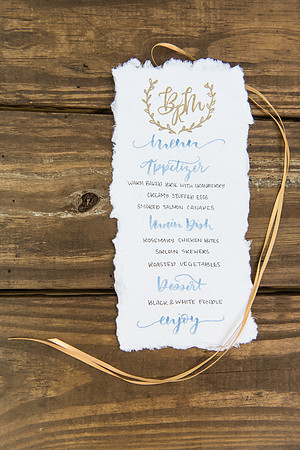 B&M
menu
Appetizer
WARM BAKED BRIE WITH CRANBERRY
CREAMY STUFFED EGGS
SMOKED SALMON CANAPES
Main Dish
ROSEMARY CHICKEN BITES
SIRLOIN SKEWERS
ROASTED VEGETABLES
Dessert
BLACK & WHITE FONDUE
enjoy